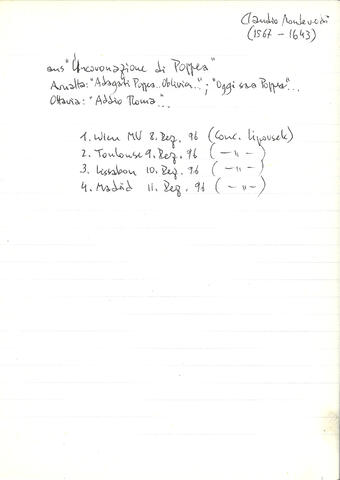 Claudio Monteverdi
(1567 - 1643)
aus "Incoronazione di Poppea"
Arnalta: "Adagiati Poppea.. Oblivion.."; "Oggi sarà Poppea"...
Ottavia: "Addio Roma"...
1. Wien MV 8. Dez. 96 (Conc. Lipovsek)
2. Toulouse 9. Dez. 96 ( —"— )
3. Lissabon 10. Dez. 96 ( —"— )
4. Madrid 11. Dez. 96 ( —"— )